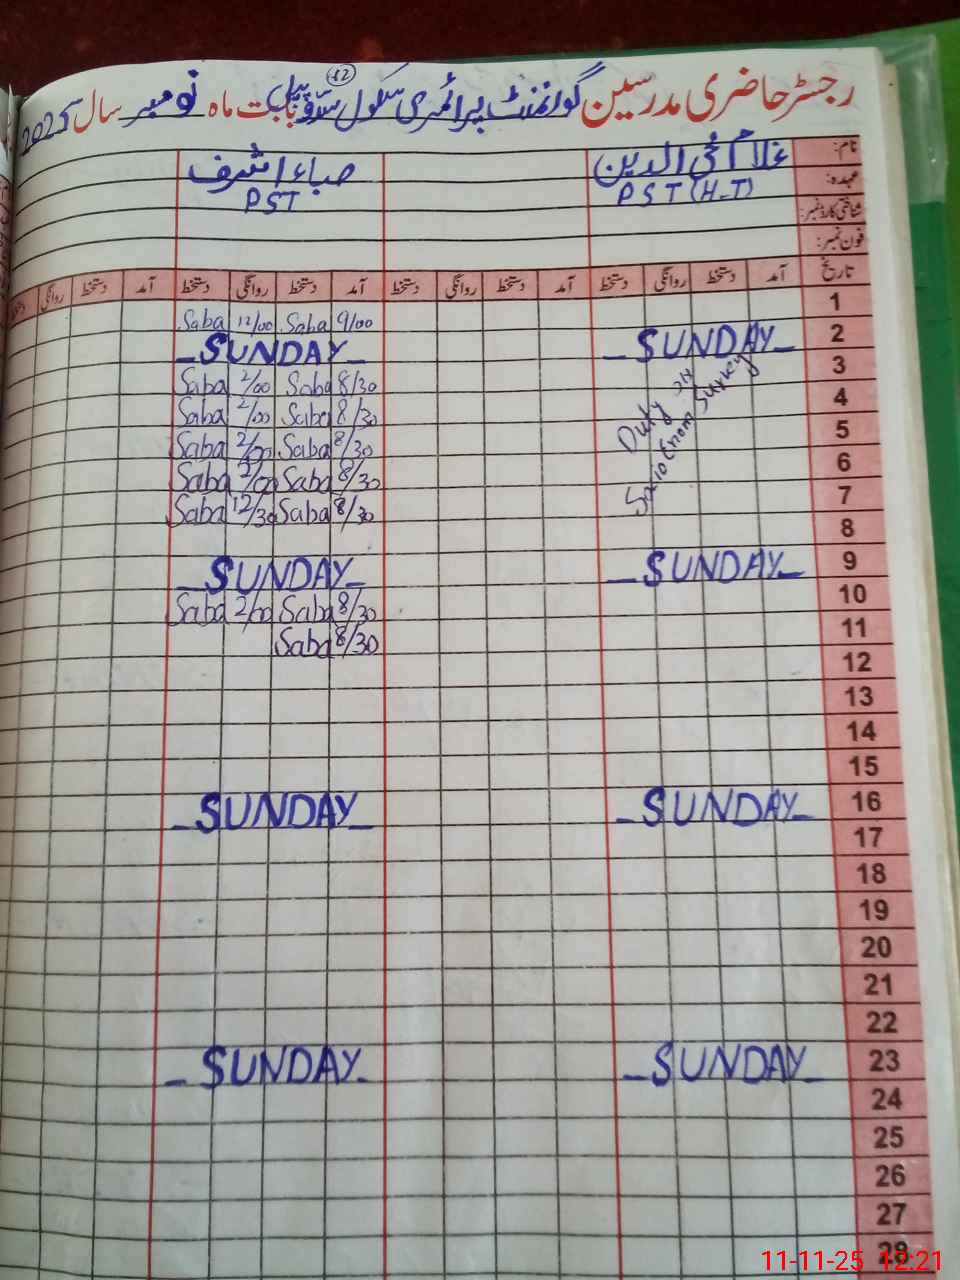 رجسٹر حاضری مدرسین گورنمنٹ پرائمری سکول بابت ماہ نومبر سال 2025
نام: غلام محی الدین صباء اشرف
عہدہ: PST (H-T) PST
شناختی کارڈ نمبر:
فون نمبر:
تاریخ آمد دستخط روانگی دستخط آمد دستخط روانگی دستخط آمد دستخط روانگی دستخط آمد دستخط روانگی
1 9/00 Saba 12/00 Saba
2 _SUNDAY_ _SUNDAY_
3 8/30 Saba 2/00 Saba
4 8/30 Saba 2/00 Saba
5 8/30 Saba 2/00 Saba
6 8/30 Saba 2/00 Saba
7 8/30 Saba 12/30 Saba
Duty
Socio Enom Survey
8
9 _SUNDAY_ _SUNDAY_
10 8/30 Saba 2/00 Saba
11 8/30 Saba
12
13
14
15
16 _SUNDAY_ _SUNDAY_
17
18
19
20
21
22
23 _SUNDAY_ _SUNDAY_
24
25
26
27
28
11-11-25 12:21